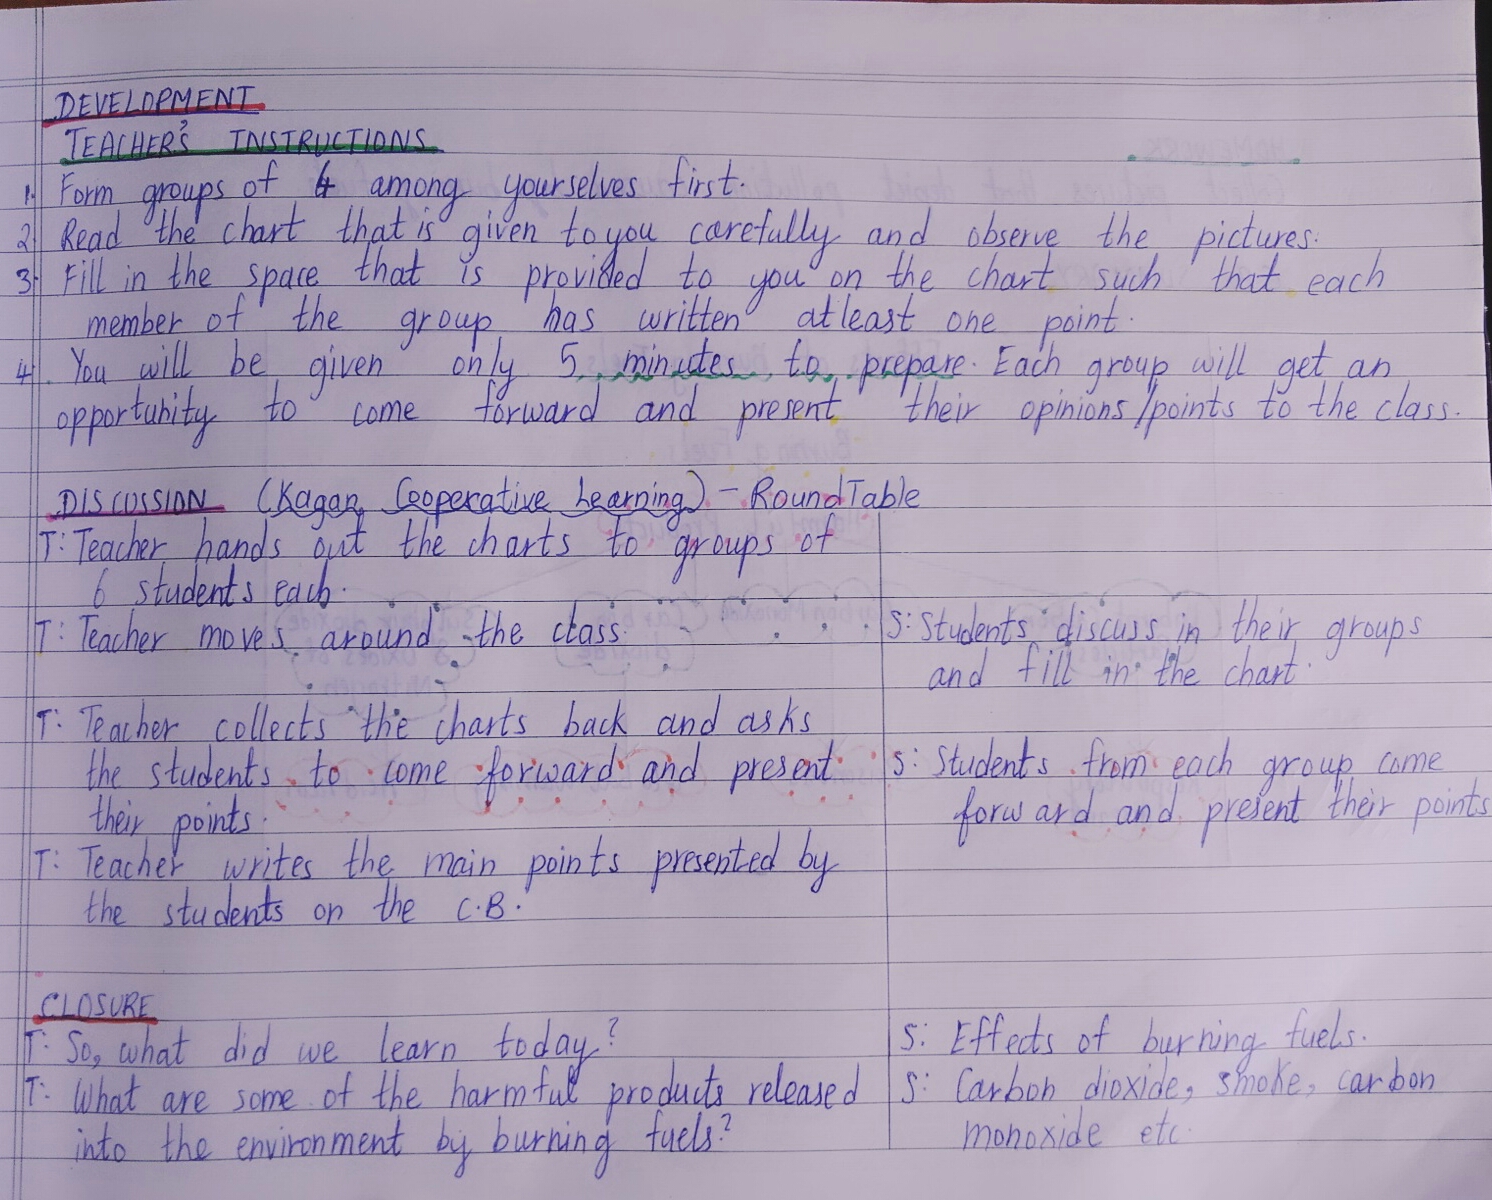 DEVELOPMENT
TEACHER'S INSTRUCTIONS
1. Form groups of 4 among yourselves first.
2. Read the chart that is given to you carefully and observe the pictures.
3. Fill in the space that is provided to you on the chart such that each
member of the group has written atleast one point.
4. You will be given only 5 minutes to prepare. Each group will get an
opportunity to come forward and present their opinions/points to the class.
DISCUSSION (Kagan Cooperative Learning) - RoundTable
T: Teacher hands out the charts to groups of
6 students each.
T: Teacher moves around the class.
S: Students discuss in their groups
and fill in the chart.
T: Teacher collects the charts back and asks
the students to come forward and present
their points.
S: Students from each group come
forward and present their points
T: Teacher writes the main points presented by
the students on the C.B.
CLOSURE
T: So, what did we learn today?
S: Effects of burning fuels.
T: What are some of the harmful products released
into the environment by burning fuels?
S: Carbon dioxide, smoke, carbon
monoxide etc.